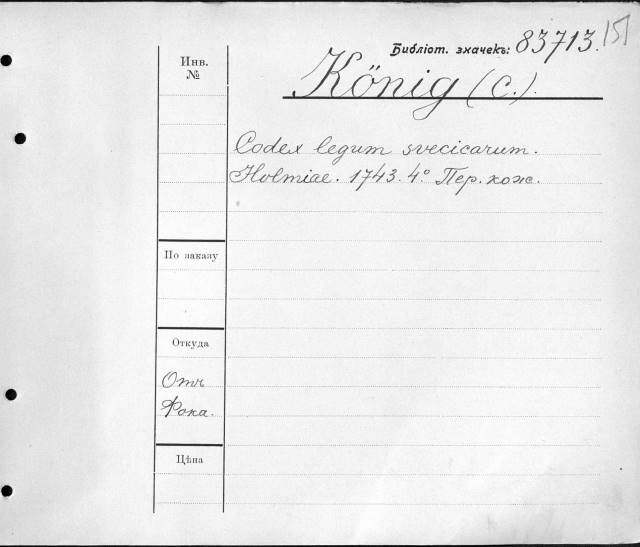 Библіот. значекъ: 83713. 151
Инв.
№
König (C.).
Codex legum svecicarum.
Holmiae. 1743. 4° Пер. кож.
По заказу
Откуда
Отъ
Фока.
Цѣна